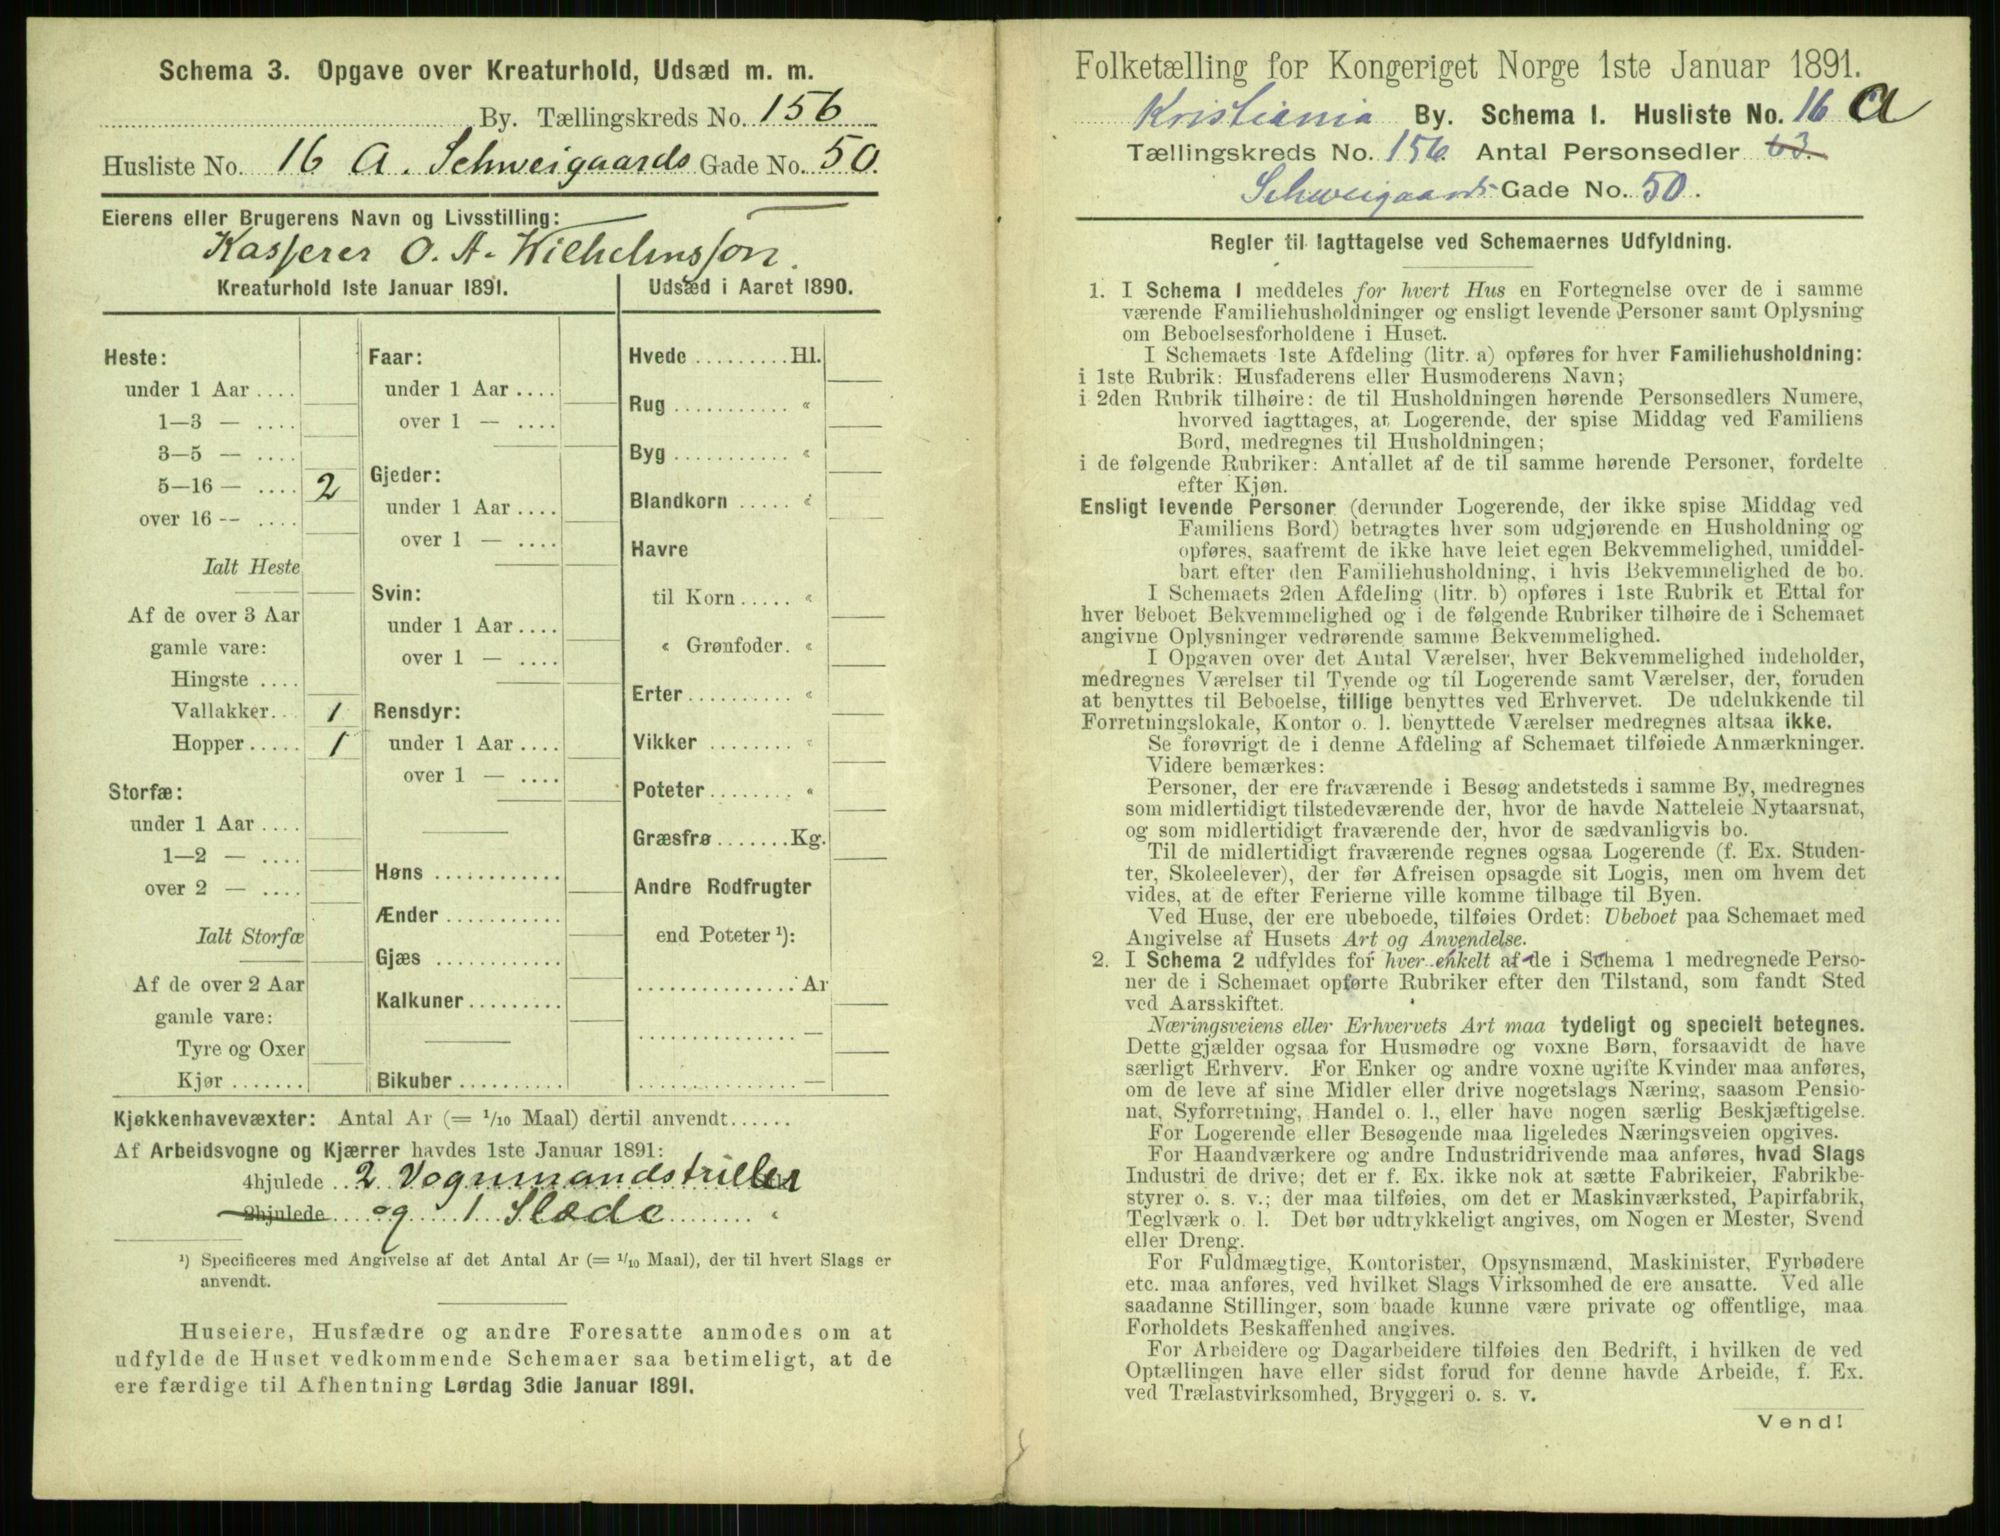 Schema 3. Opgave over Kreaturhold, Udsæd m. m.
By. Tællingskreds No. 156
Husliste No. 16 A. Schweigaards Gade No. 50.
Eierens eller Brugerens Navn og Livsstilling:
Kasserer O. A. Wilhelmsson.
Kreaturhold 1ste Januar 1891.
Heste:
under 1 Aar ....
1—3 — ....
3—5 — ....
5—16 — .... 2
over 16 -- ....
Ialt Heste
Af de over 3 Aar
gamle vare:
Hingste ....
Vallakker.. 1
Hopper ..... 1
Storfæ:
under 1 Aar ....
1—2 — ....
over 2 — ....
Ialt Storfæ
Af de over 2 Aar
gamle vare:
Tyre og Oxer
Kjør .......
Faar:
under 1 Aar ....
over 1 — ....
Gjeder:
under 1 Aar ....
over 1 — ....
Svin:
under 1 Aar ....
over 1 — ....
Rensdyr:
under 1 Aar ....
over 1 — ....
Høns ............
Ænder ...........
Gjæs ............
Kalkuner .........
Bikuber ..........
Udsæd i Aaret 1890.
Hvede ......... Hl.
Rug ........... «
Byg ........... «
Blandkorn ..... «
Havre
til Korn ..... «
« Grønfoder. «
Erter .......... «
Vikker ........ «
Poteter ........ «
Græsfrø ....... Kg.
Andre Rodfrugter
end Poteter ¹):
............... Ar
............... —
............... —
Kjøkkenhavevæxter: Antal Ar (= 1/10 Maal) dertil anvendt......
Af Arbeidsvogne og Kjærrer havdes 1ste Januar 1891:
4hjulede .. 2 Vognmandstriller
2hjulede .... og 1 Slæde ........ «
¹) Specificeres med Angivelse af det Antal Ar (= 1/10 Maal), der til hvert Slags er
anvendt.
Huseiere, Husfædre og andre Foresatte anmodes om at
udfylde de Huset vedkommende Schemaer saa betimeligt, at de
ere færdige til Afhentning Lørdag 3die Januar 1891.
Folketælling for Kongeriget Norge 1ste Januar 1891.
Kristiania By. Schema I. Husliste No. 16 A
Tællingskreds No. 156. Antal Personsedler 63.
Schweigaards Gade No. 50.
Regler til Iagttagelse ved Schemaernes Udfyldning.
1. I Schema 1 meddeles for hvert Hus en Fortegnelse over de i samme
værende Familiehusholdninger og ensligt levende Personer samt Oplysning
om Beboelsesforholdene i Huset.
I Schemaets 1ste Afdeling (litr. a) opføres for hver Familiehusholdning:
i 1ste Rubrik: Husfaderens eller Husmoderens Navn;
i 2den Rubrik tilhøire: de til Husholdningen hørende Personsedlers Numere,
hvorved iagttages, at Logerende, der spise Middag ved Familiens
Bord, medregnes til Husholdningen;
i de følgende Rubriker: Antallet af de til samme hørende Personer, fordelte
efter Kjøn.
Ensligt levende Personer (derunder Logerende, der ikke spise Middag ved
Familiens Bord) betragtes hver som udgjørende en Husholdning og
opføres, saafremt de ikke have leiet egen Bekvemmelighed, umiddel-
bart efter den Familiehusholdning, i hvis Bekvemmelighed de bo.
I Schemaets 2den Afdeling (litr. b) opføres i 1ste Rubrik et Ettal for
hver beboet Bekvemmelighed og i de følgende Rubriker tilhøire de i Schemaet
angivne Oplysninger vedrørende samme Bekvemmelighed.
I Opgaven over det Antal Værelser, hver Bekvemmelighed indeholder,
medregnes Værelser til Tyende og til Logerende samt Værelser, der, foruden
at benyttes til Beboelse, tillige benyttes ved Erhvervet. De udelukkende til
Forretningslokale, Kontor o. l. benyttede Værelser medregnes altsaa ikke.
Se forøvrigt de i denne Afdeling af Schemaet tilføiede Anmærkninger.
Videre bemærkes:
Personer, der ere fraværende i Besøg andetsteds i samme By, medregnes
som midlertidigt tilstedeværende der, hvor de havde Natteleie Nytaarsnat,
og som midlertidigt fraværende der, hvor de sædvanligvis bo.
Til de midlertidigt fraværende regnes ogsaa Logerende (f. Ex. Studen-
ter, Skoleelever), der før Afreisen opsagde sit Logis, men om hvem det
vides, at de efter Ferierne ville komme tilbage til Byen.
Ved Huse, der ere ubeboede, tilføies Ordet: Ubeboet paa Schemaet med
Angivelse af Husets Art og Anvendelse.
2. I Schema 2 udfyldes for hver enkelt af de i Schema 1 medregnede Perso-
ner de i Schemaet opførte Rubriker efter den Tilstand, som fandt Sted
ved Aarsskiftet.
Næringsveiens eller Erhvervets Art maa tydeligt og specielt betegnes.
Dette gjælder ogsaa for Husmødre og voxne Børn, forsaavidt de have
særligt Erhverv. For Enker og andre voxne ugifte Kvinder maa anføres,
om de leve af sine Midler eller drive nogetslags Næring, saasom Pensio-
nat, Syforretning, Handel o. l., eller have nogen særlig Beskjæftigelse.
For Logerende eller Besøgende maa ligeledes Næringsveien opgives.
For Haandværkere og andre Industridrivende maa anføres, hvad Slags
Industri de drive; det er f. Ex. ikke nok at sætte Fabrikeier, Fabrikbe-
styrer o. s. v.; der maa tilføies, om det er Maskinværksted, Papirfabrik,
Teglværk o. l. Det bør udtrykkeligt angives, om Nogen er Mester, Svend
eller Dreng.
For Fuldmægtige, Kontorister, Opsynsmænd, Maskinister, Fyrbødere
etc. maa anføres, ved hvilket Slags Virksomhed de ere ansatte. Ved alle
saadanne Stillinger, som baade kunne være private og offentlige, maa
Forholdets Beskaffenhed angives.
For Arbeidere og Dagarbeidere tilføies den Bedrift, i hvilken de ved
Optællingen have eller sidst forud for denne havde Arbeide, f. Ex.
ved Trælastvirksomhed, Bryggeri o. s. v.
Vend!